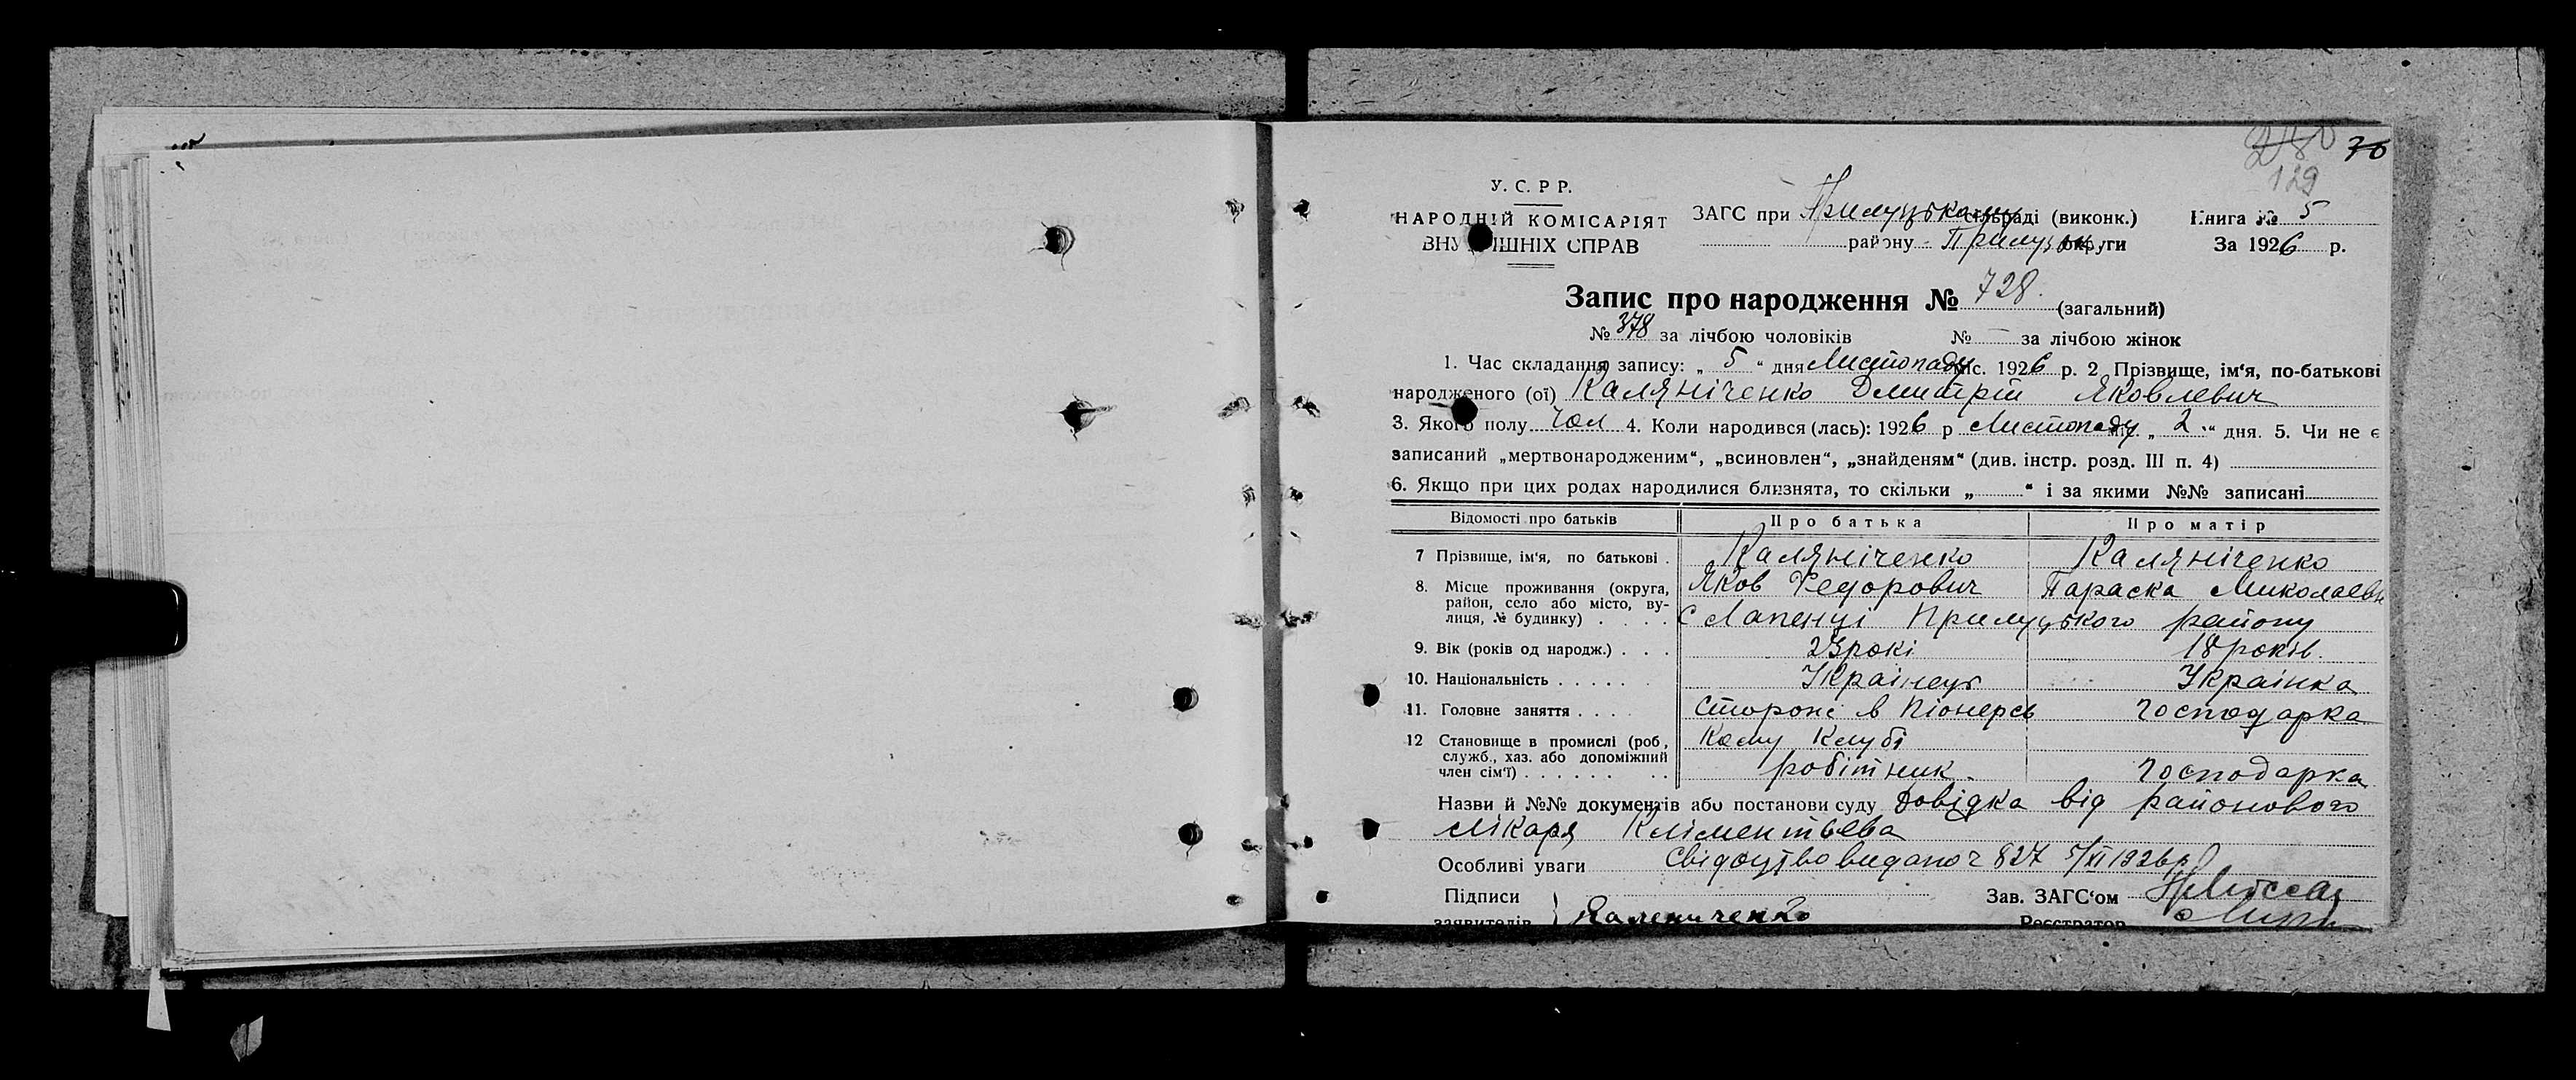 240 70
129
У. С. Р Р.
НАРОДНІЙ КОМІСАРІЯТ
ВНУ ІШНІХ СПРАВ
ЗАГС при Прилуцькому сільраді (виконк.)
району Прилуцьк. округи
Книга № 5
За 1926 р.
Запис про народження № 728. (загальний)
№ 378 за лічбою чоловіків № — за лічбою жінок
1. Час складання запису: „ 5 “ дня Листопаду міс. 1926 р. 2 Прізвище, ім‘я, по-батькові
народженого (ої) Каляніченко Дмитрій Яковлевич
3. Якого полу Чол 4. Коли народився (лась): 1926 р Листопаду міс. „ 2 “ дня. 5. Чи не є
записаний „мертвонародженим“, „всиновлен“, „знайденям“ (див. інстр. розд. III п. 4)
6. Якщо при цих родах народилися близнята, то скільки „ “ і за якими №№ записані
Відомості про батьків Про батька Про матір
7 Прізвище, ім‘я, по батькові . Каляніченко Каляніченко
Яков Федорович Параска Миколаевн
8. Місце проживання (округа, район, село або місто, вулиця, № будинку) . . . . с Лапенці Прилуцького району
9. Вік (років од народж.) . . . 23 рокі 18 років
10. Національність . . . . . Українець Українка
11. Головне заняття . . . . Сторожі в Піонерсь Господарка
кому Клубі
12 Становище в промислі (роб, служб., хаз. або допоміжний член сім‘ї) . . . . . . . . робітник Господарка
Назви й №№ документів або постанови суду Довідка від районового
лікаря Кліментьева
Особливі уваги Свідоцтво видано ч 827 5/XI 1926 р
Підписи
заявителів } Каленіченко
Зав. ЗАГС‘ом
Реєстратор